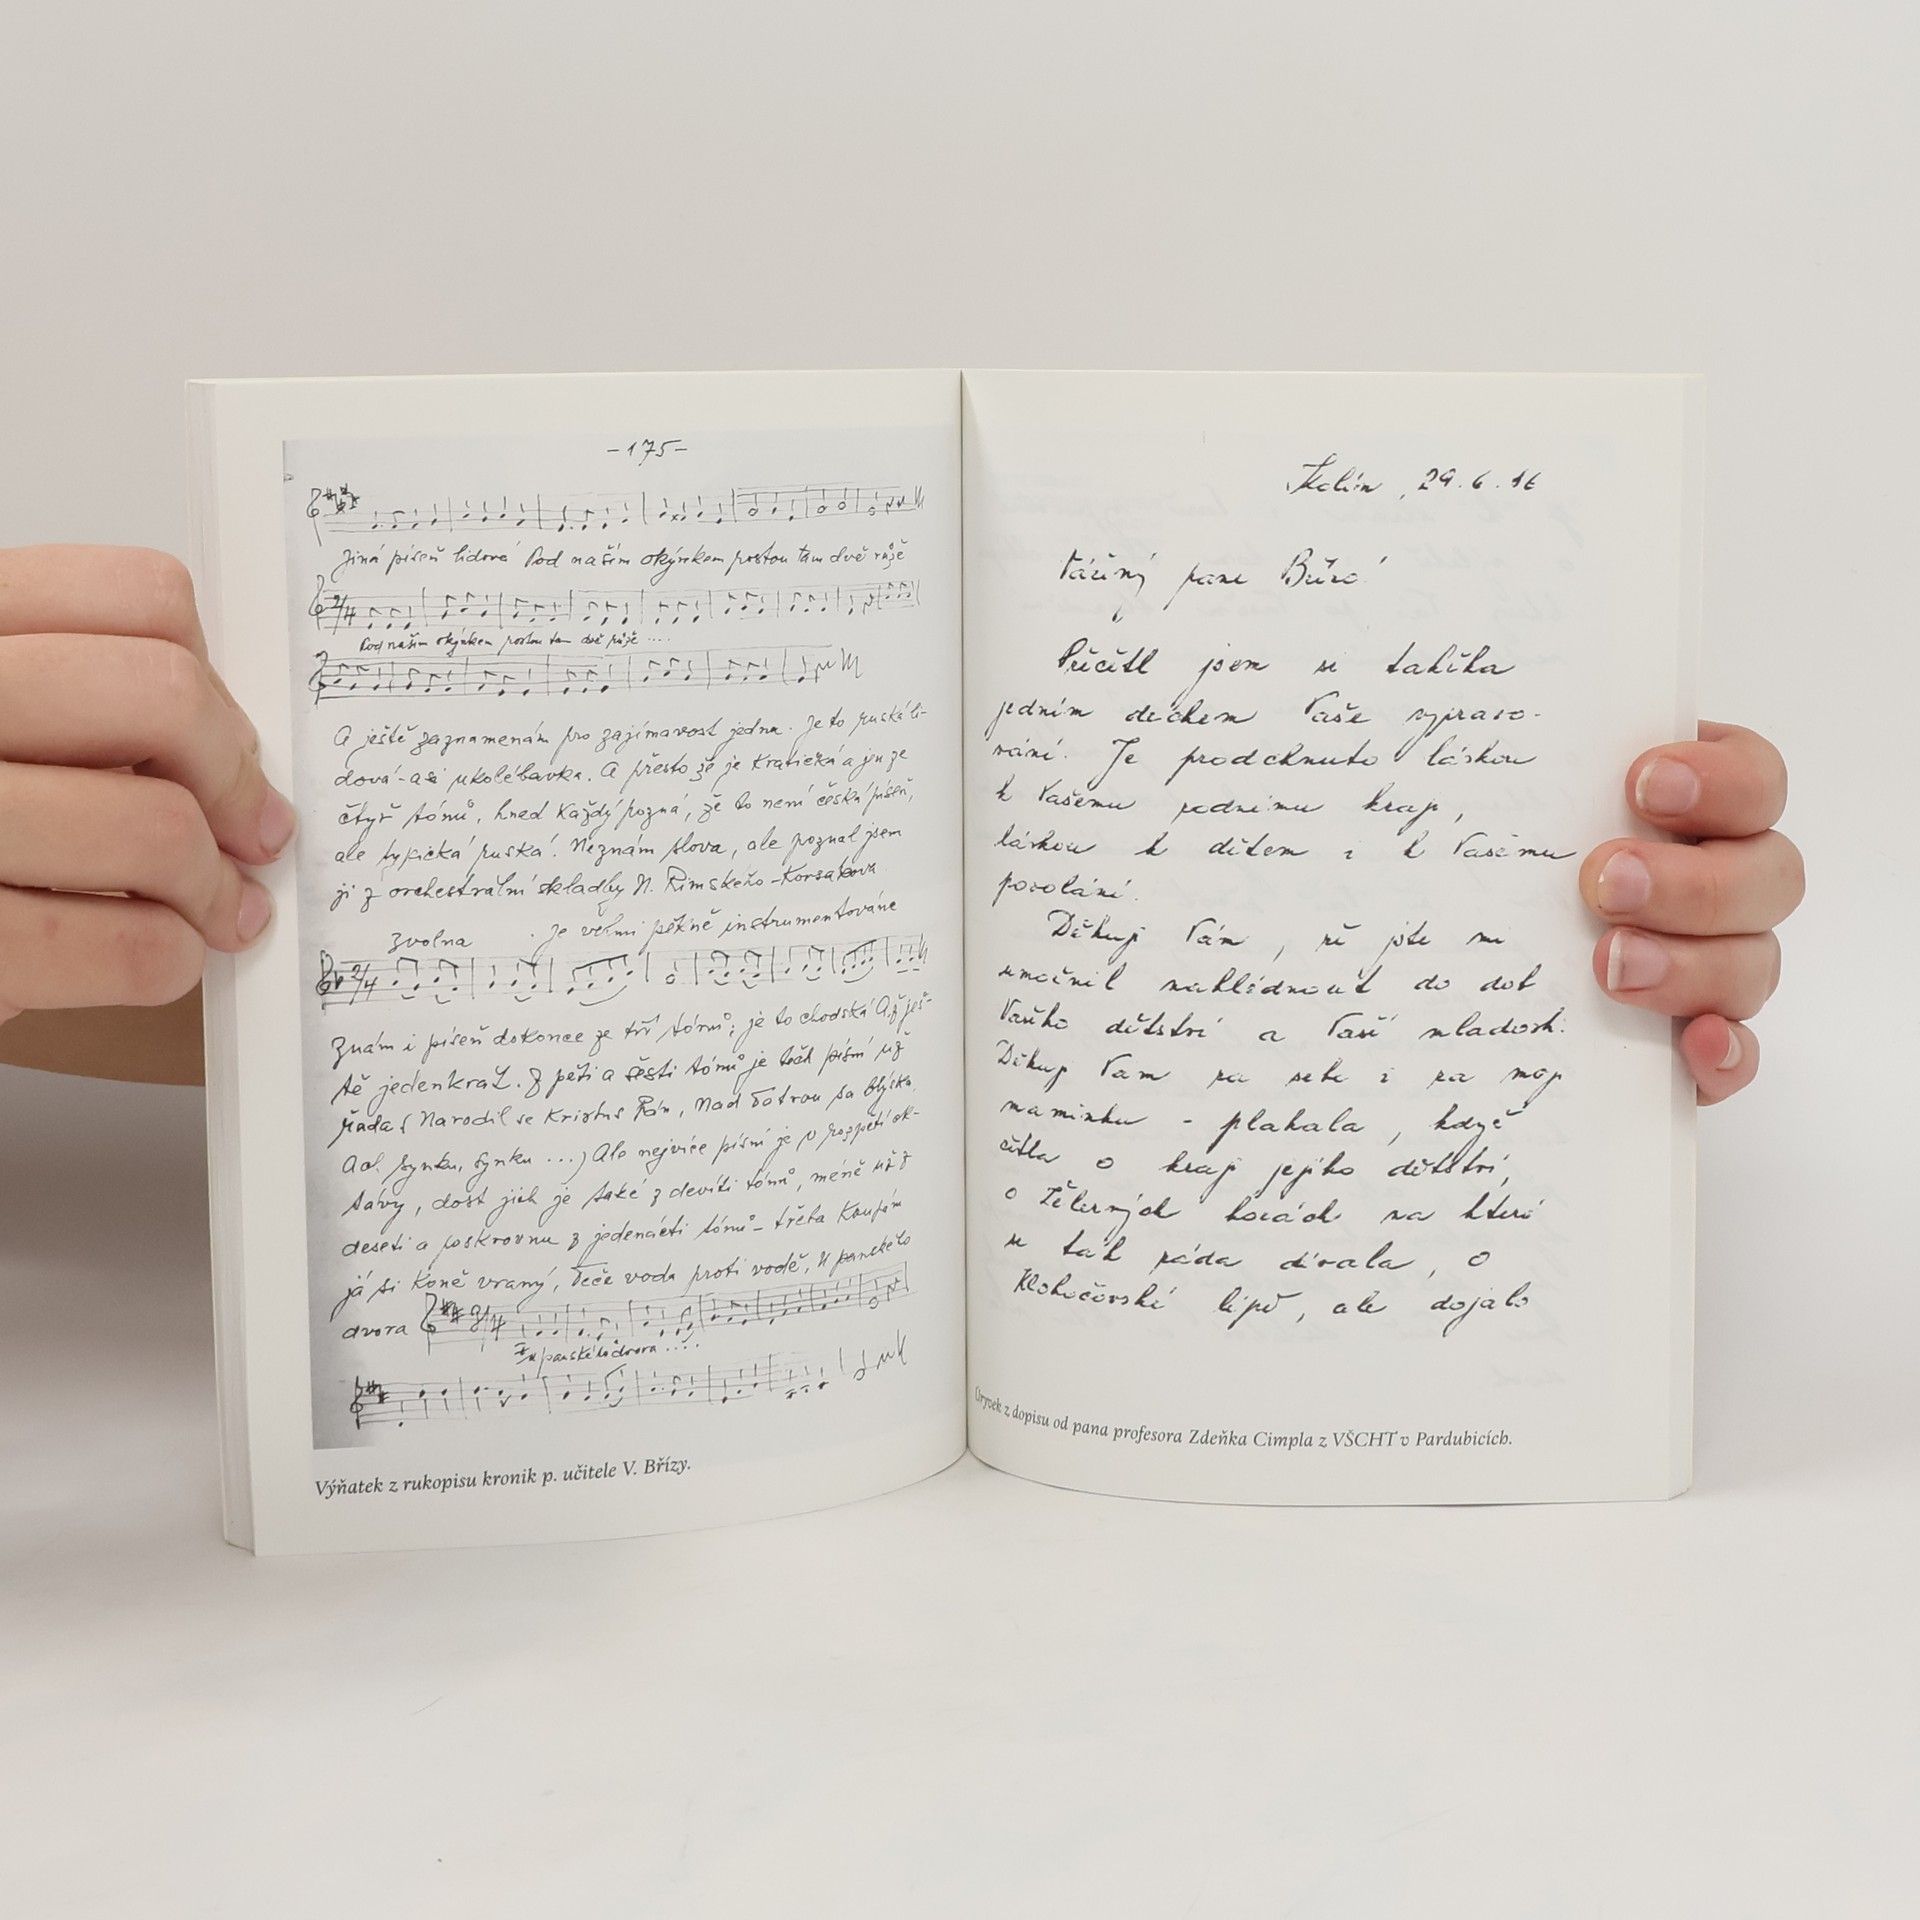 -175-
Jiná píseň lidová Pod naším okýnkem rostou tam dvě růže
2/4
Pod naším okýnkem rostou tam dvě růže .....
A ještě zaznamenám pro zajímavost jednu. Je to ruská li-
dová - asi ukolébavka. A přesto že je kratičká a jen ze
čtyř tónů, hned každý pozná, že to není česká píseň,
ale typická ruská. Neznám slova, ale poznal jsem
ji z orchestrální skladby N. Rimského-Korsakova.
zvolna . Je velmi pěkně instrumentována
2/4
Znám i píseň dokonce ze tří tónů; je to chodská Až ješ-
tě jedenkrát. Z pěti a šesti tónů je těch písní už
řada (Narodil se Kristus Pán, Nad Tatrou sa blýska,
Ach synku, synku ...) Ale nejvíce písní je v rozpětí ok-
távy, dost jich je také z devíti tónů, méně už z
deseti a poskrovnu z jedenácti tónů - třeba Koupím
já si koně vraný, Teče voda proti vodě, U panského
dvora 3/4
U panského dvora ....
Výňatek z rukopisu kronik p. učitele V. Břízy.
Kolín, 29.6.16
Vážený pane Břízo!
Přečetl jsem si takřka
jedním dechem Vaše vypravo-
vání. Je prodchnuto láskou
k Vašemu rodnému kraji,
láskou k dětem i k Vašemu
povolání.
Děkuji Vám, že jste mi
umožnil nahlédnout do dob
Vašeho dětství a Vaší mladosti.
Děkuji Vám za sebe i za moji
maminku - plakala, když
četla o kraji jejího dětství,
o Železných horách na které
se tak ráda dívala, o
Klokočovské lípě, ale dojalo
Úryvek z dopisu od pana profesora Zdeňka Cimpla z VŠCHT v Pardubicích.